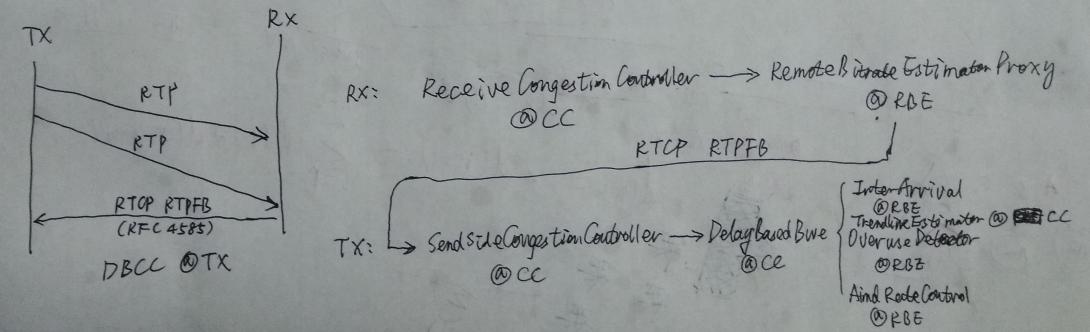 TX
RX
RTP
RTP
RTCP RTPFB
(RFC 4585)
DBCC @TX
RX: ReceiveCongestionController → RemoteBitrateEstimatorProxy
@CC
@RBE
RTCP RTPFB
TX: SendSideCongestionController → DelayBasedBwe
@CC
@CC
InterArrival
@RBE
TrendlineEstimator @ CC
OveruseDetector
@RBE
AimdRateControl
@RBE